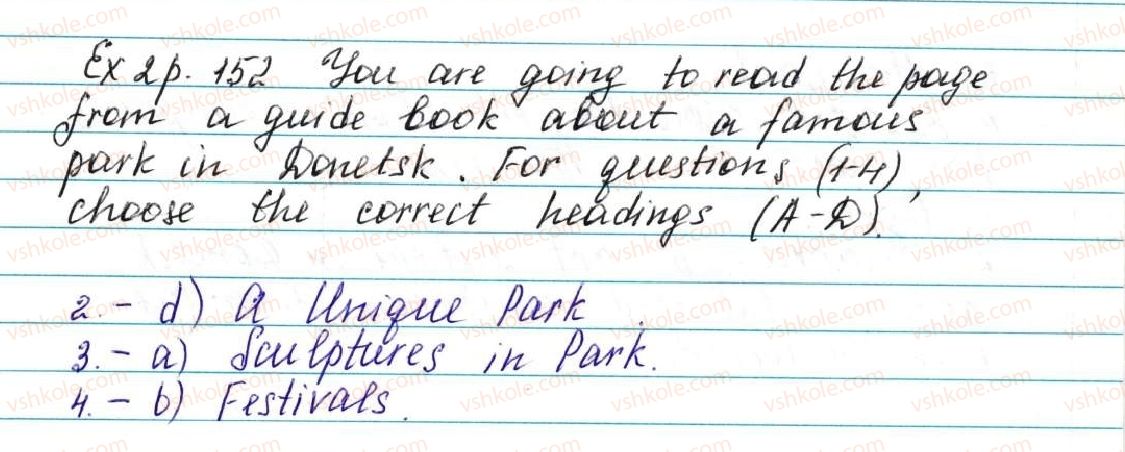 Ex 2 p. 152 You are going to read the page
from a guide book about a famous
park in Donetsk. For questions (1-4),
choose the correct headings (A-D).
2. - d) A Unique Park.
3. - a) Sculptures in Park.
4. - b) Festivals.